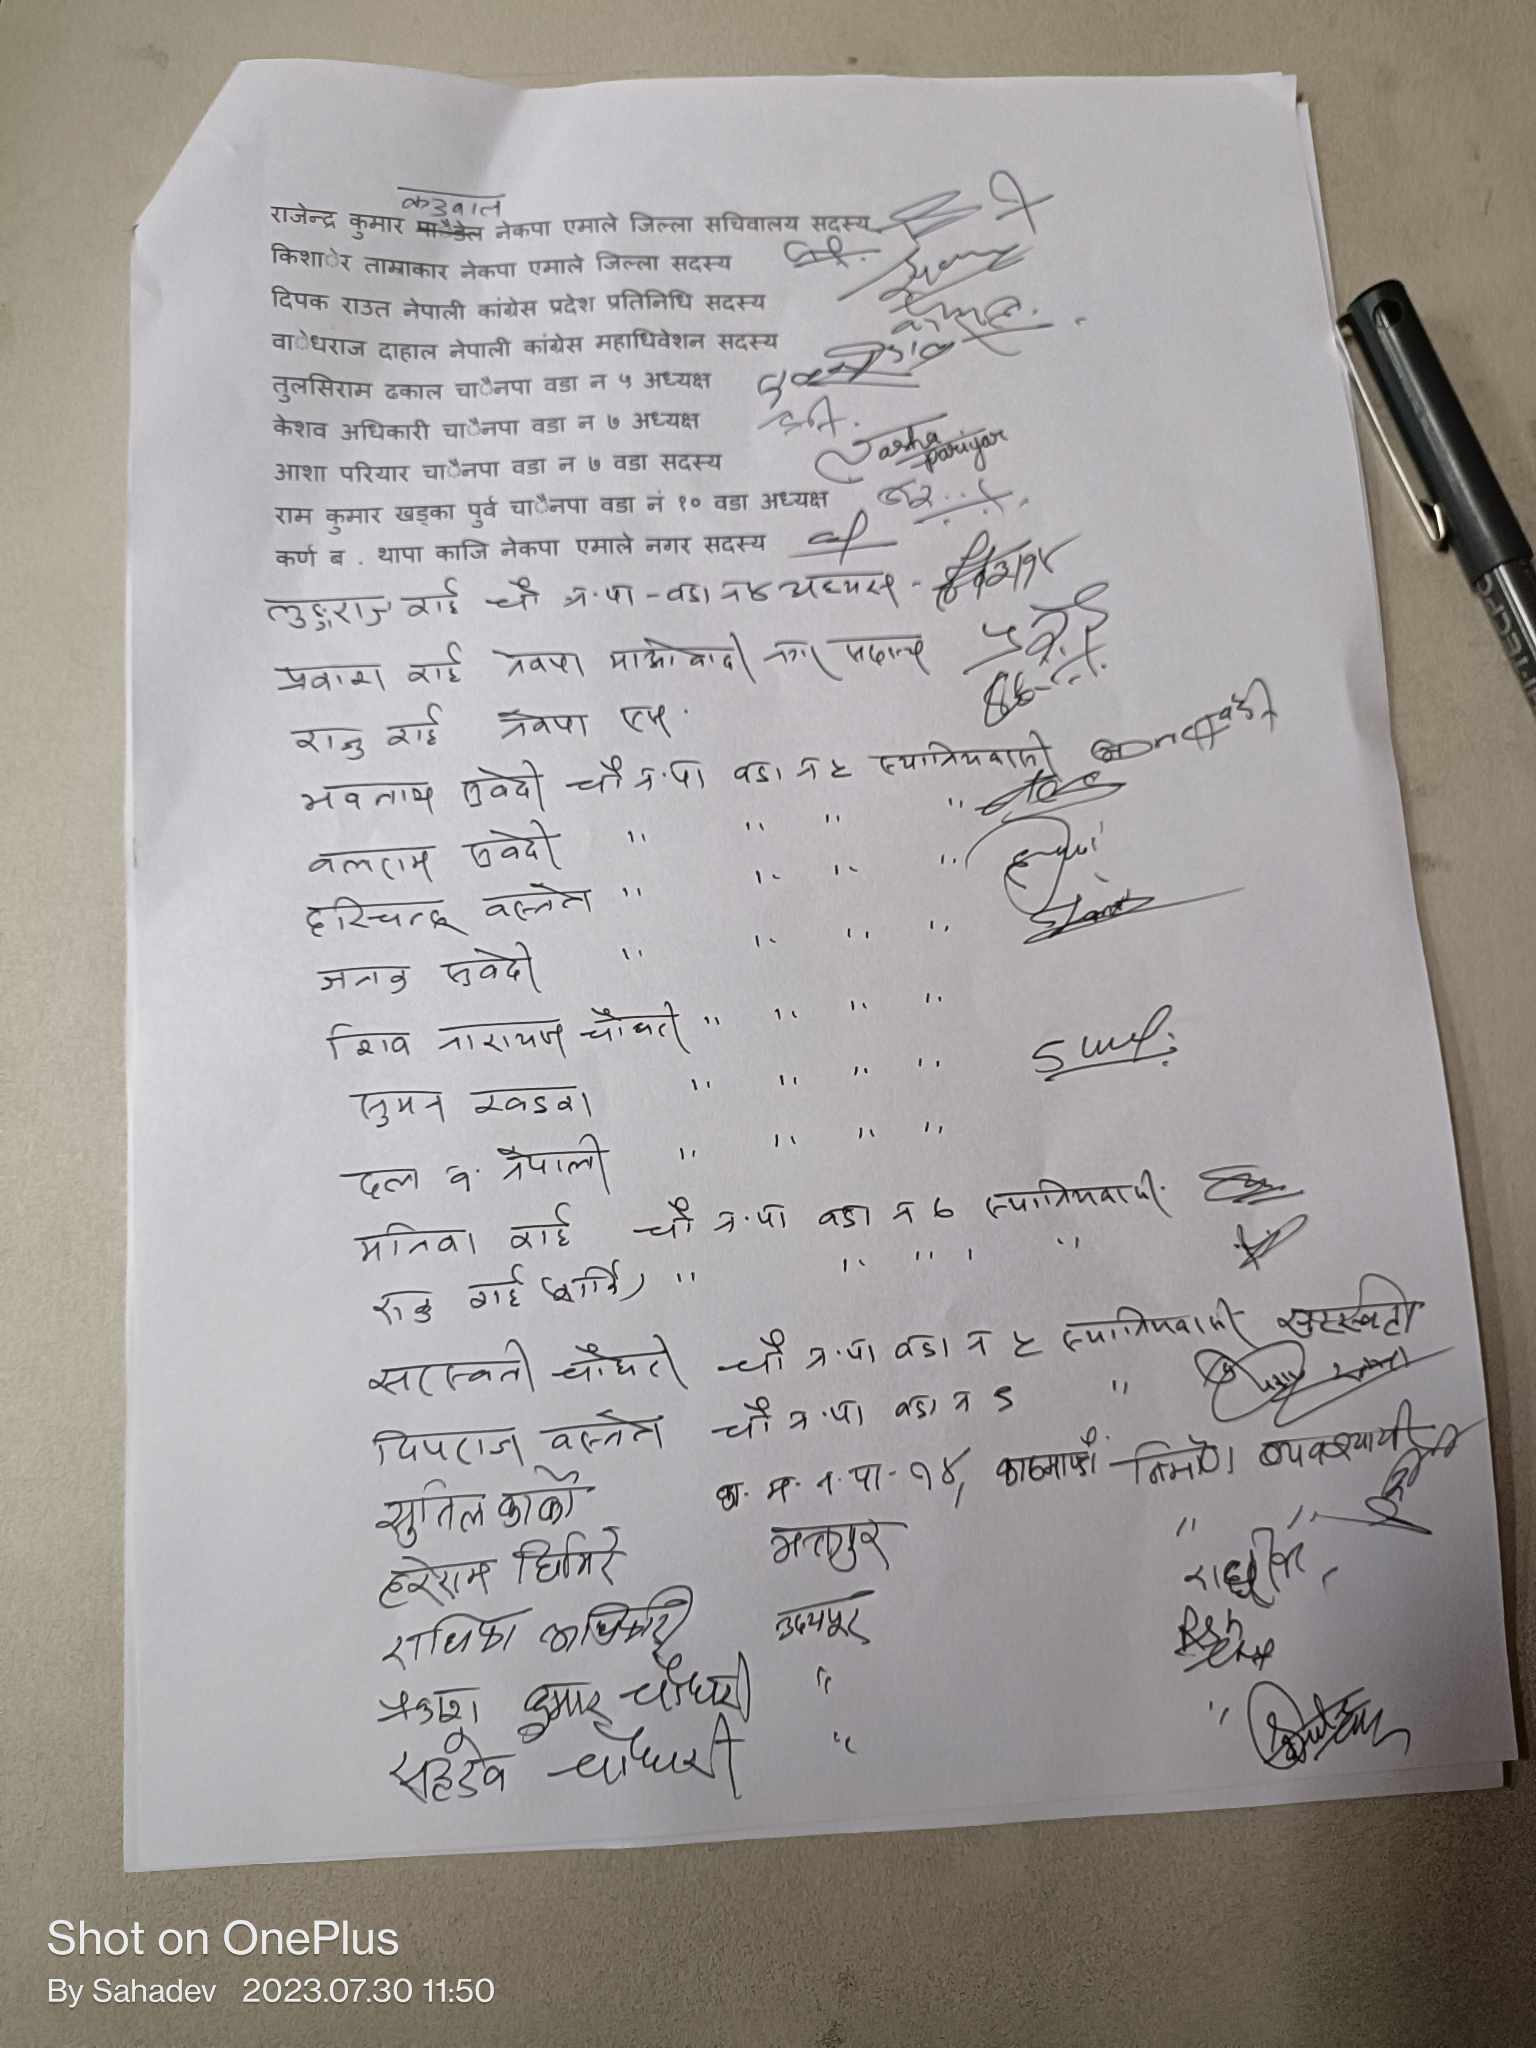 कडवाल
राजेन्द्र कुमार पाैडेल नेकपा एमाले जिल्ला सचिवालय सदस्य
किशाेर ताम्राकार नेकपा एमाले जिल्ला सदस्य
दिपक राउत नेपाली कांग्रेस प्रदेश प्रतिनिधि सदस्य
वाेधराज दाहाल नेपाली कांग्रेस महाधिवेशन सदस्य
तुलसिराम ढकाल चाैनपा वडा न ५ अध्यक्ष
केशव अधिकारी चाैनपा वडा न ७ अध्यक्ष
आशा परियार चाैनपा वडा न ७ वडा सदस्य
Aasha pariyar
राम कुमार खड्का पुर्व चाैनपा वडा नं १० वडा अध्यक्ष
कर्ण ब . थापा काजि नेकपा एमाले नगर सदस्य
राई चौ न.पा - वडा न
प्रकाश राई नेकपा माओवादी नगर सदस्य
राजु राई नेकपा एस.
सुवेदी चौ न.पा वडा न ८ स्थानियवासी
वलराम सुवेदी " " " "
हरिचन्द्र वस्नेत " " " "
जनक सुवेदी " " " "
शिव नारायण चौधरी " " " "
सुमन खडका " " " "
दल व. नेपाली " " " "
मनिका राई चौ न.पा वडा न ७ स्थानियवासी
राजु राई " " " "
सरस्वती चौधरी चौ न.पा वडा न ८ स्थानियवासी सरस्वती
दिपराज वस्नेत चौ न.पा वडा न ८ "
सुनिल कार्की का. म. न. पा - १४, काठमाडौं निर्माण व्यवसायी
हरेराम घिमिरे भक्तपुर " "
राधिका अधिकारी उदयपुर राधिका
प्रकाश कुमार चौधरी "
सहदेव चौधरी " "
Shot on OnePlus
By Sahadev 2023.07.30 11:50